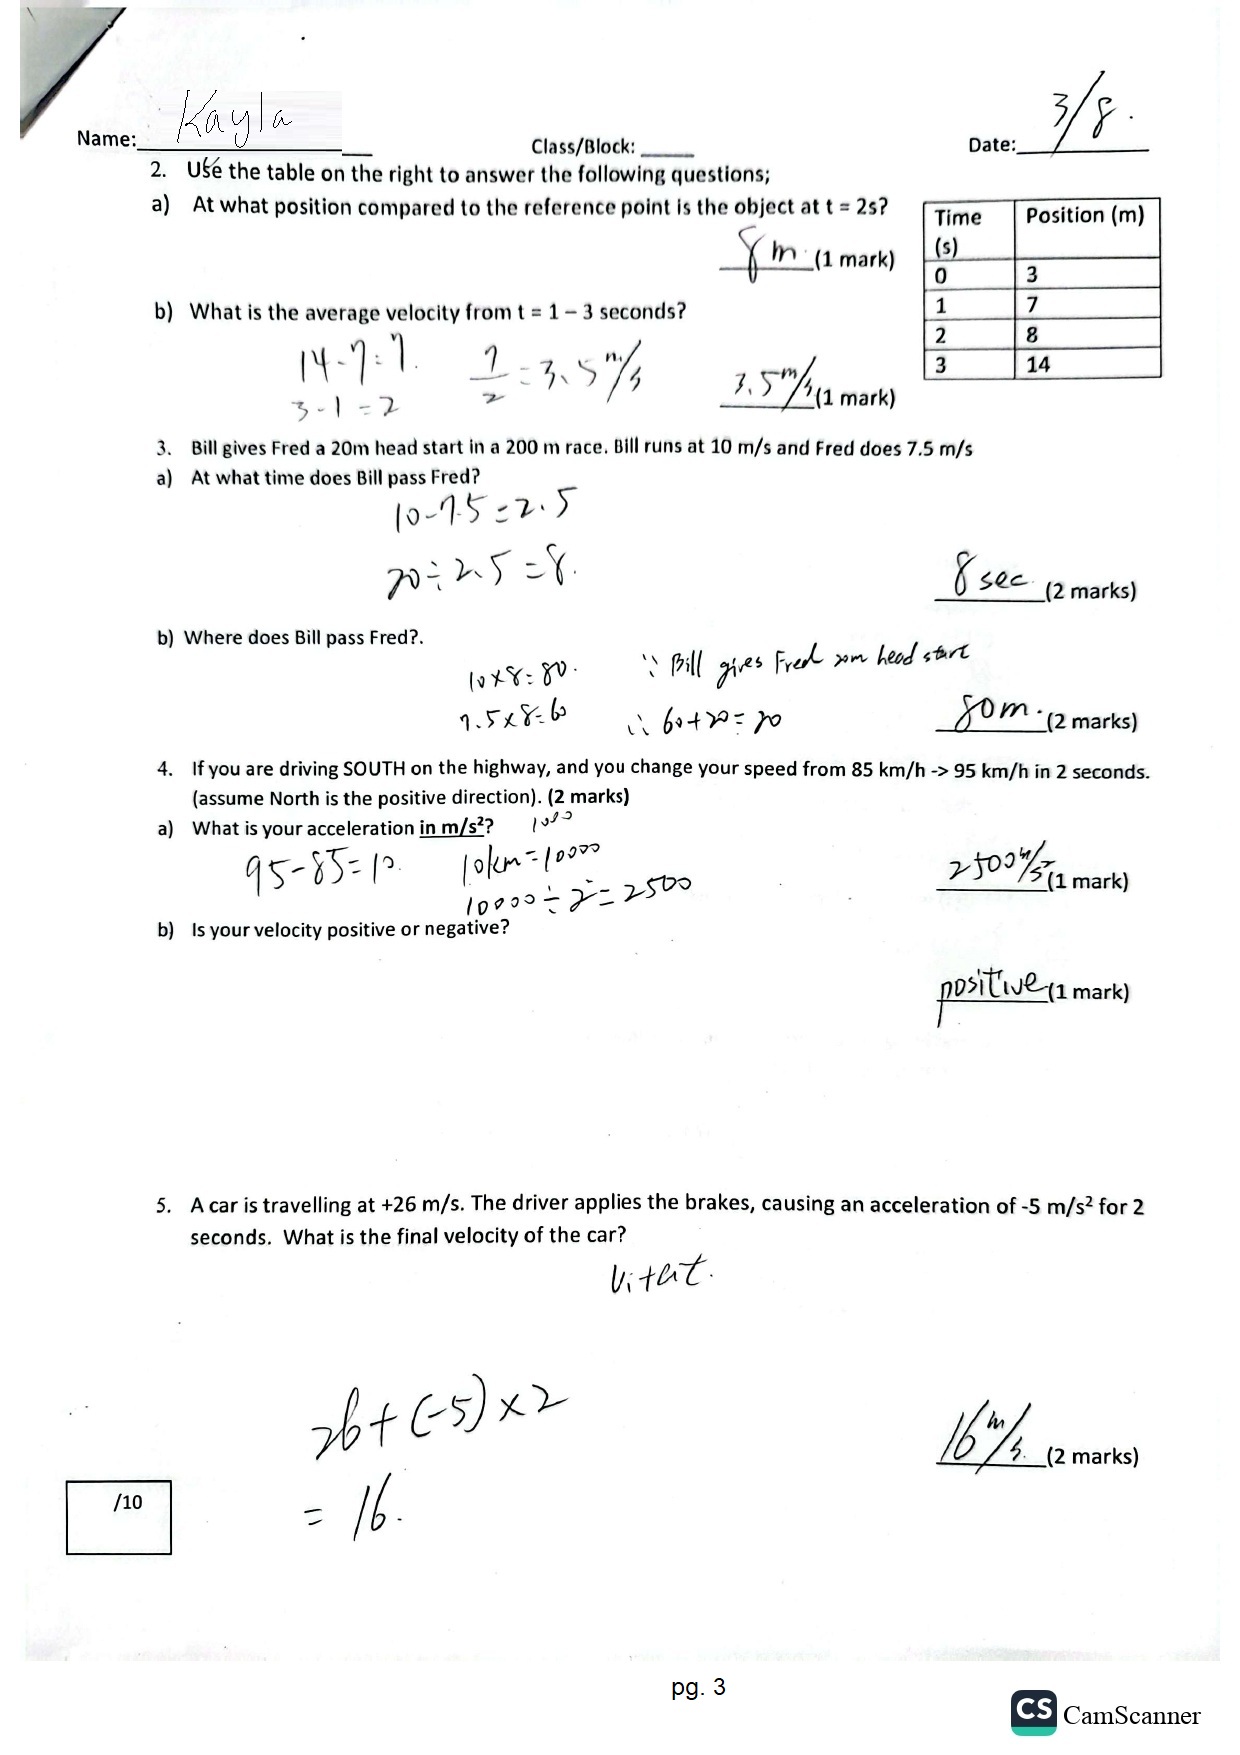 Name: Kayla
Class/Block:
Date: 3/8.
2. Use the table on the right to answer the following questions;
a) At what position compared to the reference point is the object at t = 2s?
8m. (1 mark)
Time (s) Position (m)
0 3
1 7
2 8
3 14
b) What is the average velocity from t = 1 – 3 seconds?
14-7=7.
3-1=2
7/2 = 3.5 m/s
3.5 m/s (1 mark)
3. Bill gives Fred a 20m head start in a 200 m race. Bill runs at 10 m/s and Fred does 7.5 m/s
a) At what time does Bill pass Fred?
10-7.5=2.5
20÷2.5=8.
8 sec. (2 marks)
b) Where does Bill pass Fred?.
10×8=80.
7.5×8=60
∵ Bill gives Fred 20m head start
∴ 60+20=20
80m. (2 marks)
4. If you are driving SOUTH on the highway, and you change your speed from 85 km/h -> 95 km/h in 2 seconds.
(assume North is the positive direction). (2 marks)
a) What is your acceleration in m/s²?
1000
95-85=10.
10km=10000
10000÷2²=2500
2500 m/s² (1 mark)
b) Is your velocity positive or negative?
positive (1 mark)
5. A car is travelling at +26 m/s. The driver applies the brakes, causing an acceleration of -5 m/s² for 2
seconds. What is the final velocity of the car?
Vi+at.
26+(-5)×2
= 16.
16 m/s. (2 marks)
/10
pg. 3
CS CamScanner